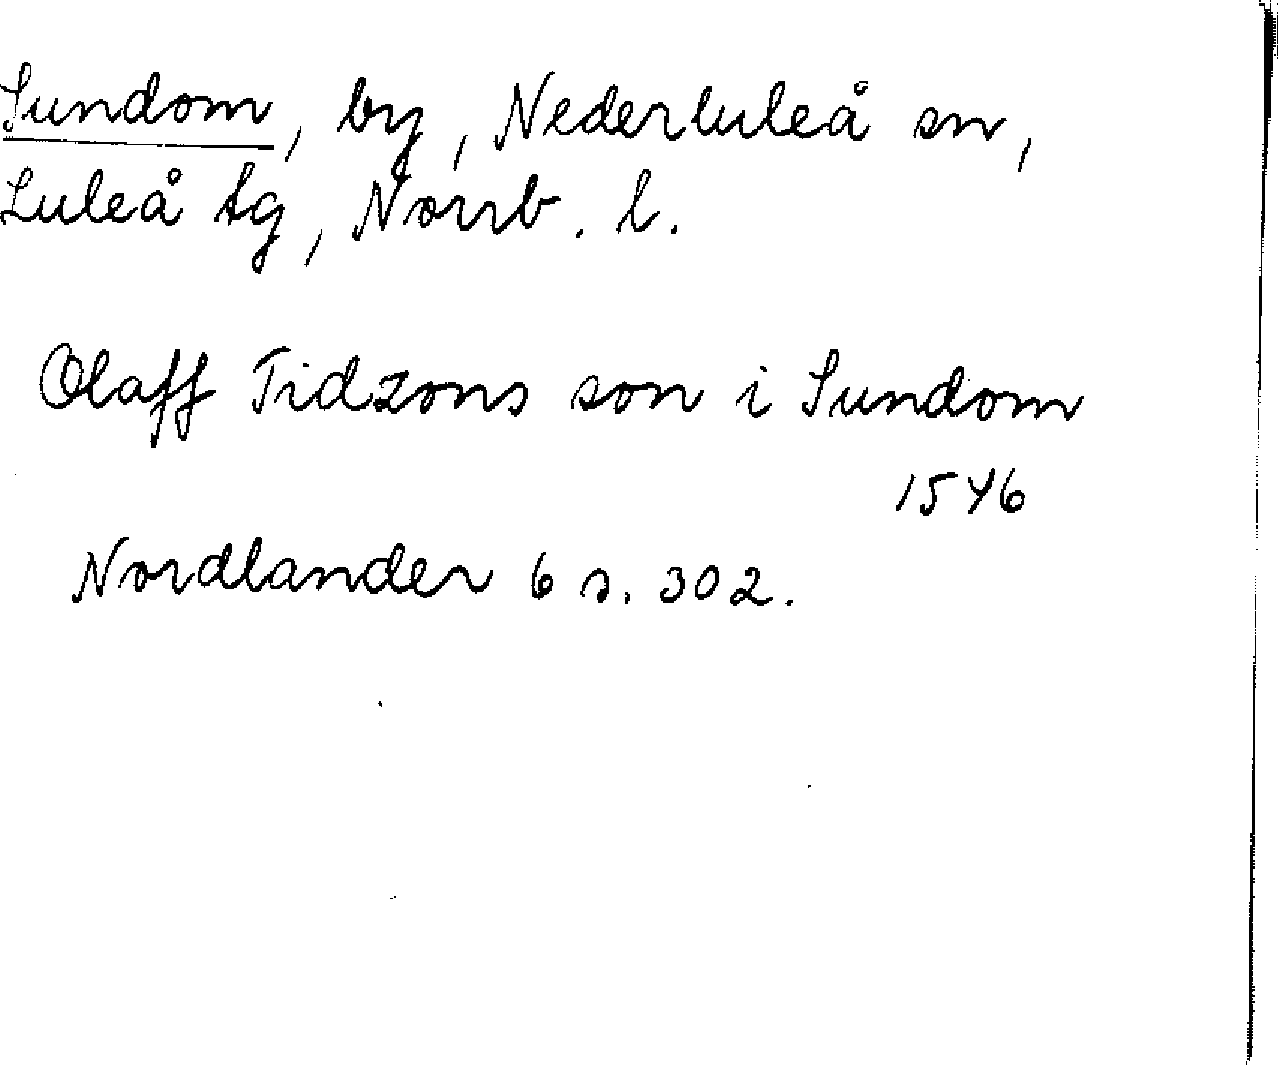 Sundom, by, Nederluleå sn,
Luleå tg, Norrb. l.
Olaff Tidzons son i Sundom
1546
Nordlander 6 s. 302.